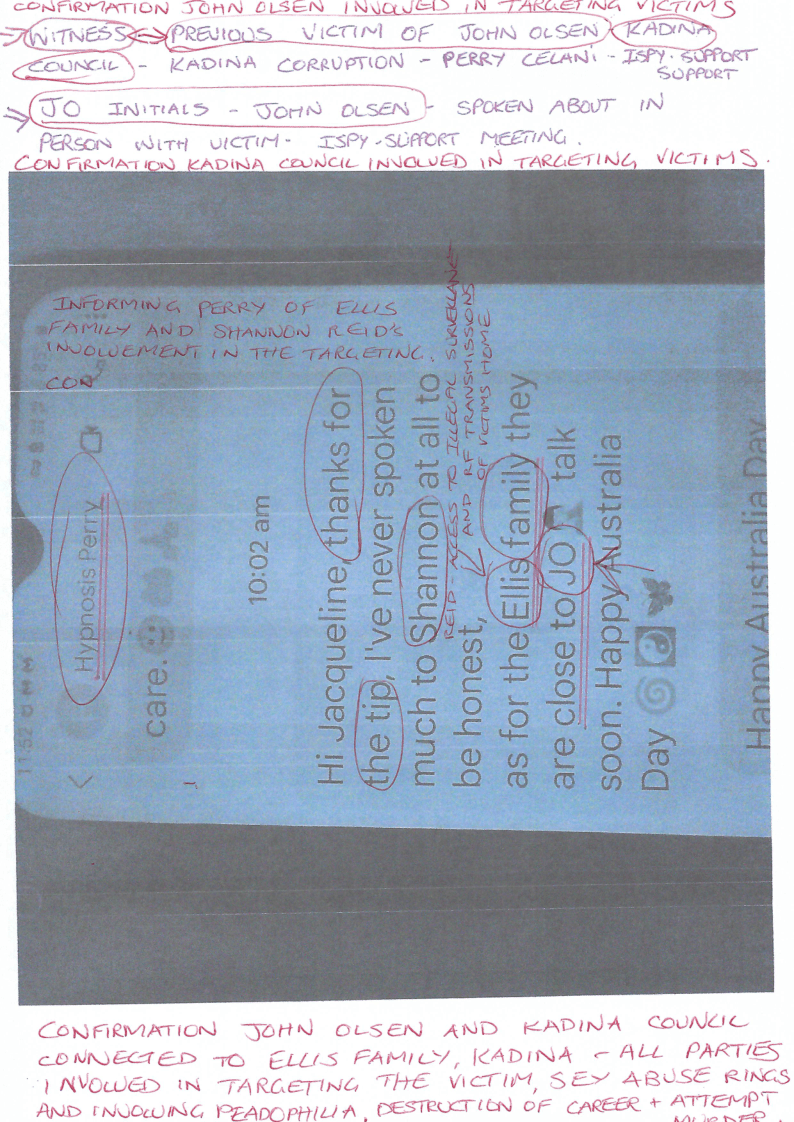 CONFIRMATION JOHN OLSEN INVOLVED IN TARGETING VICTIMS
WITNESS PREVIOUS VICTIM OF JOHN OLSEN KADINA
COUNCIL - KADINA CORRUPTION - PERRY CELANI - ISPY-SUPPORT
SUPPORT
JO INITIALS - JOHN OLSEN - SPOKEN ABOUT IN
PERSON WITH VICTIM - ISPY-SUPPORT MEETING.
CONFIRMATION KADINA COUNCIL INVOLVED IN TARGETING VICTIMS.
INFORMING PERRY OF ELLIS
FAMILY AND SHANNON REID'S
INVOLVEMENT IN THE TARGETING.
CON
11:52
Hypnosis Perry
care.
10:02 am
Hi Jacqueline, thanks for
the tip, I've never spoken
much to Shannon at all to
REID - ACCESS TO ILLEGAL SURVEILLANCE
be honest,
AND RF TRANSMISSIONS
OF VICTIMS HOME
as for the Ellis family they
are close to JO talk
soon. Happy Australia
Day
Happy Australia Day
CONFIRMATION JOHN OLSEN AND KADINA COUNCIL
CONNECTED TO ELLIS FAMILY, KADINA - ALL PARTIES
INVOLVED IN TARGETING THE VICTIM, SEX ABUSE RINGS
AND INVOLVING PEADOPHILIA, DESTRUCTION OF CAREER + ATTEMPT
MURDER.